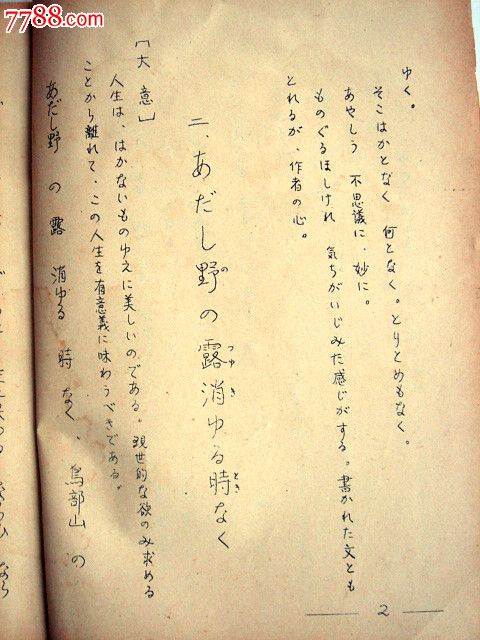 7788.com
ゆく。
そこはかとなく 何となく。とりとめもなく。
あやしう 不思議に、妙に。
ものぐるほしけれ 気ちがいじみた感じがする。書かれた文とも
とれるが、作者の心。
二、あだし野の露消ゆる時なく
の
つゆき
とき
[大意]
人生は、はかないものゆえに美しいのである。現世的な欲のみ求める
ことから離れて、この人生を有意義に味わうべきである。
あだし野 の 露 消ゆる 時 なく、鳥部山 の
2